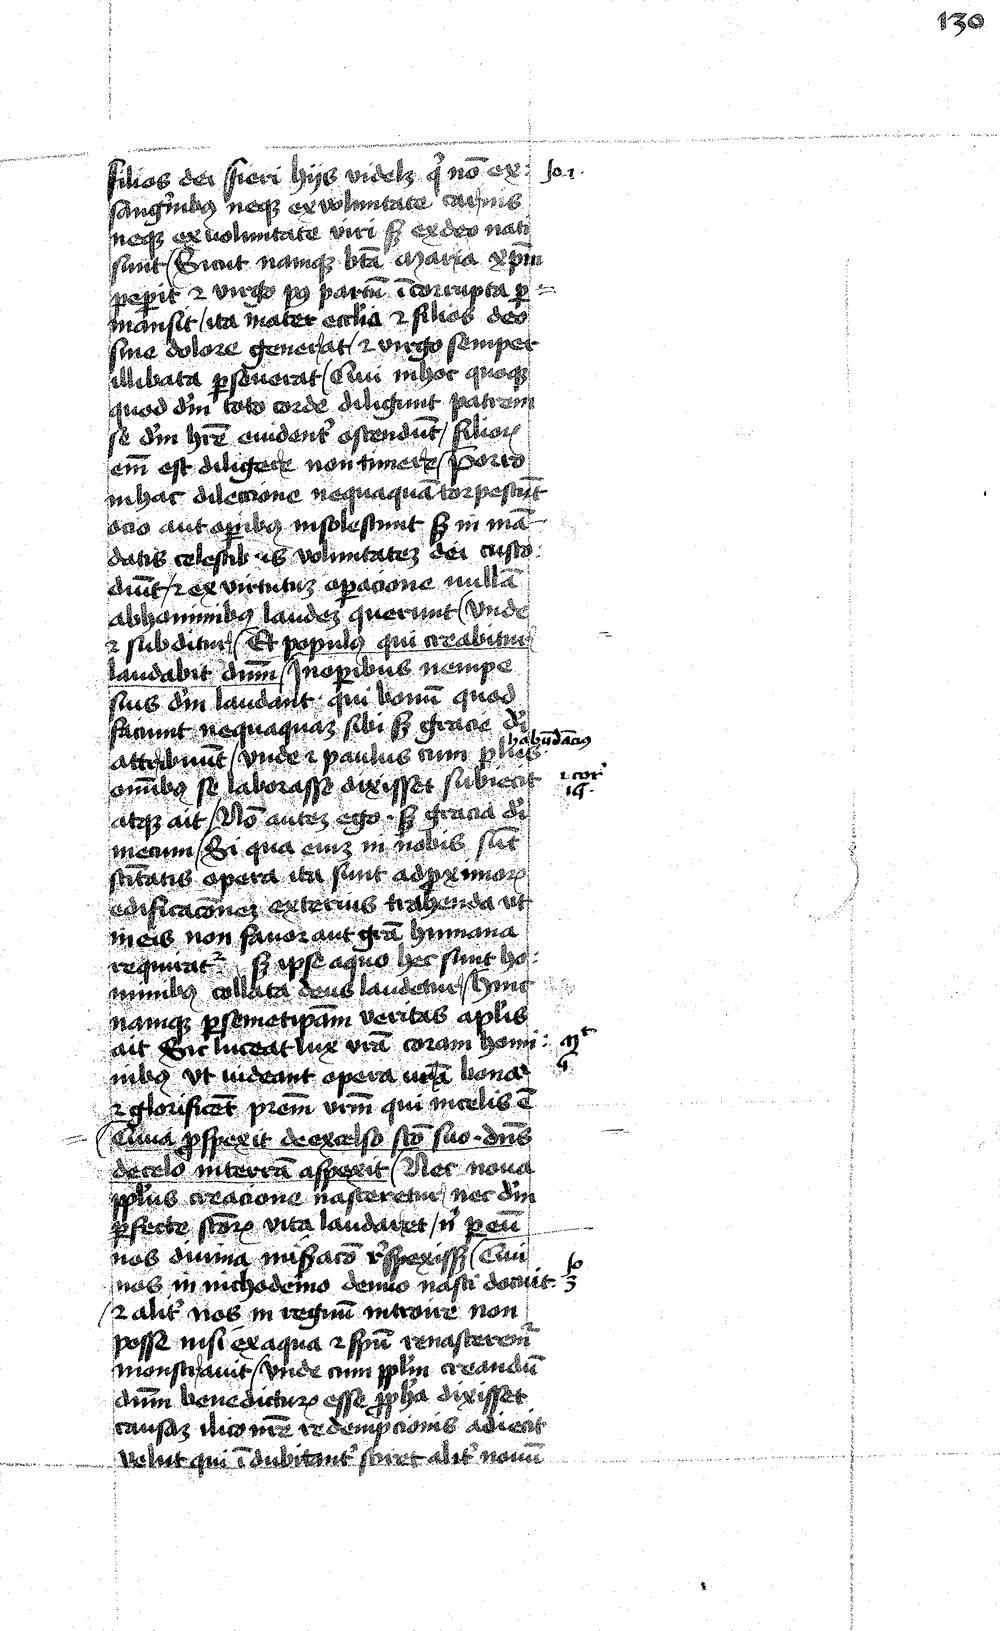 130
filios dei fieri hijs videlꝫ q̉ nō ex: Jo 1.
sangⁱnibꝫ neqꝫ ex voluntate carnis
neqꝫ ex voluntate viri sꝫ ex deo nati
sunt / Sicut namqꝫ btā Maria xpm̄
peperit ⁊ virgo pꝰ partū īcorrupta ꝑ=
mansit / ita mater eccl̄ia ⁊ filios deo
sine dolore generat / ⁊ virgo semper
illibata ꝑseuerat / Qui in hoc quoqꝫ
quod dm̄ toto corde diligunt patrem
se dm̄ hr̄e euident̉ ostendūt / filioꝝ
em̄ est diligere non timere / Porro
in hac dileccione nequaquā torpescūt
ocio aut oꝑibꝫ insolescunt sꝫ in mā
datis celestib is voluntateꝫ dei custo:
diūt / ⁊ ex virtutuꝫ oꝑacione nullā
ab hominibꝫ laudeꝫ querunt / Vnde
⁊ subditur / Et populꝰ qui creabitur
laudabit dn̄m / In oꝑibus nempe
suis dm̄ laudant qui bonū quod
faciunt nequaquaꝫ sibi sꝫ gracie di
attribuūt / Vnde ⁊ paulus cum plus habūdāciꝰ
omībꝫ se laborasse dixisset subiecit 1 cor̉
atqꝫ ait / Nō auteꝫ ego · sꝫ gracia di 15.
mecum / Si qua eniꝫ in nobis sūt
sc̄itatis opera ita sunt ad ꝓximoꝝ
edificacōneꝫ exterius trahenda vt
in eis non fauor aut grā humana
requirat᷑ sꝫ ipse a quo hec sunt ho:
minibꝫ collata deus laudetur / Hinc
namqꝫ ꝑ semetipām veritas aplis
ait Sic luceat lux vrā coram homi: Mt
nibꝫ vt videant opera vrā bona 5
⁊ glorificēt prēm vrm̄ qui in celis ē
Quia ꝓspexit de excelso scō suo · dn̄s
de celo in terrā aspexit / Nec noua
ppl̄us creacione nasceretur / nec dm̄
ꝑfecte scōꝝ vita laudaret / n̉ ꝑ eū
nos diuina miseracō r̉spexissꝫ / Qui
nos in nichodemo denuo nasci docuit: Jo 3
/ ⁊ alit̉ nos in regnū introire non
posse nisi ex aqua ⁊ spū renascerem᷑
monstrauit / Vnde cum ppl̄m creandū
dn̄m benedicturꝝ esse ꝓpha dixisset
causaꝫ ilico nr̄e redempcionis adiecit
velut qui īdubitant̉ sciret alit̉ nouū